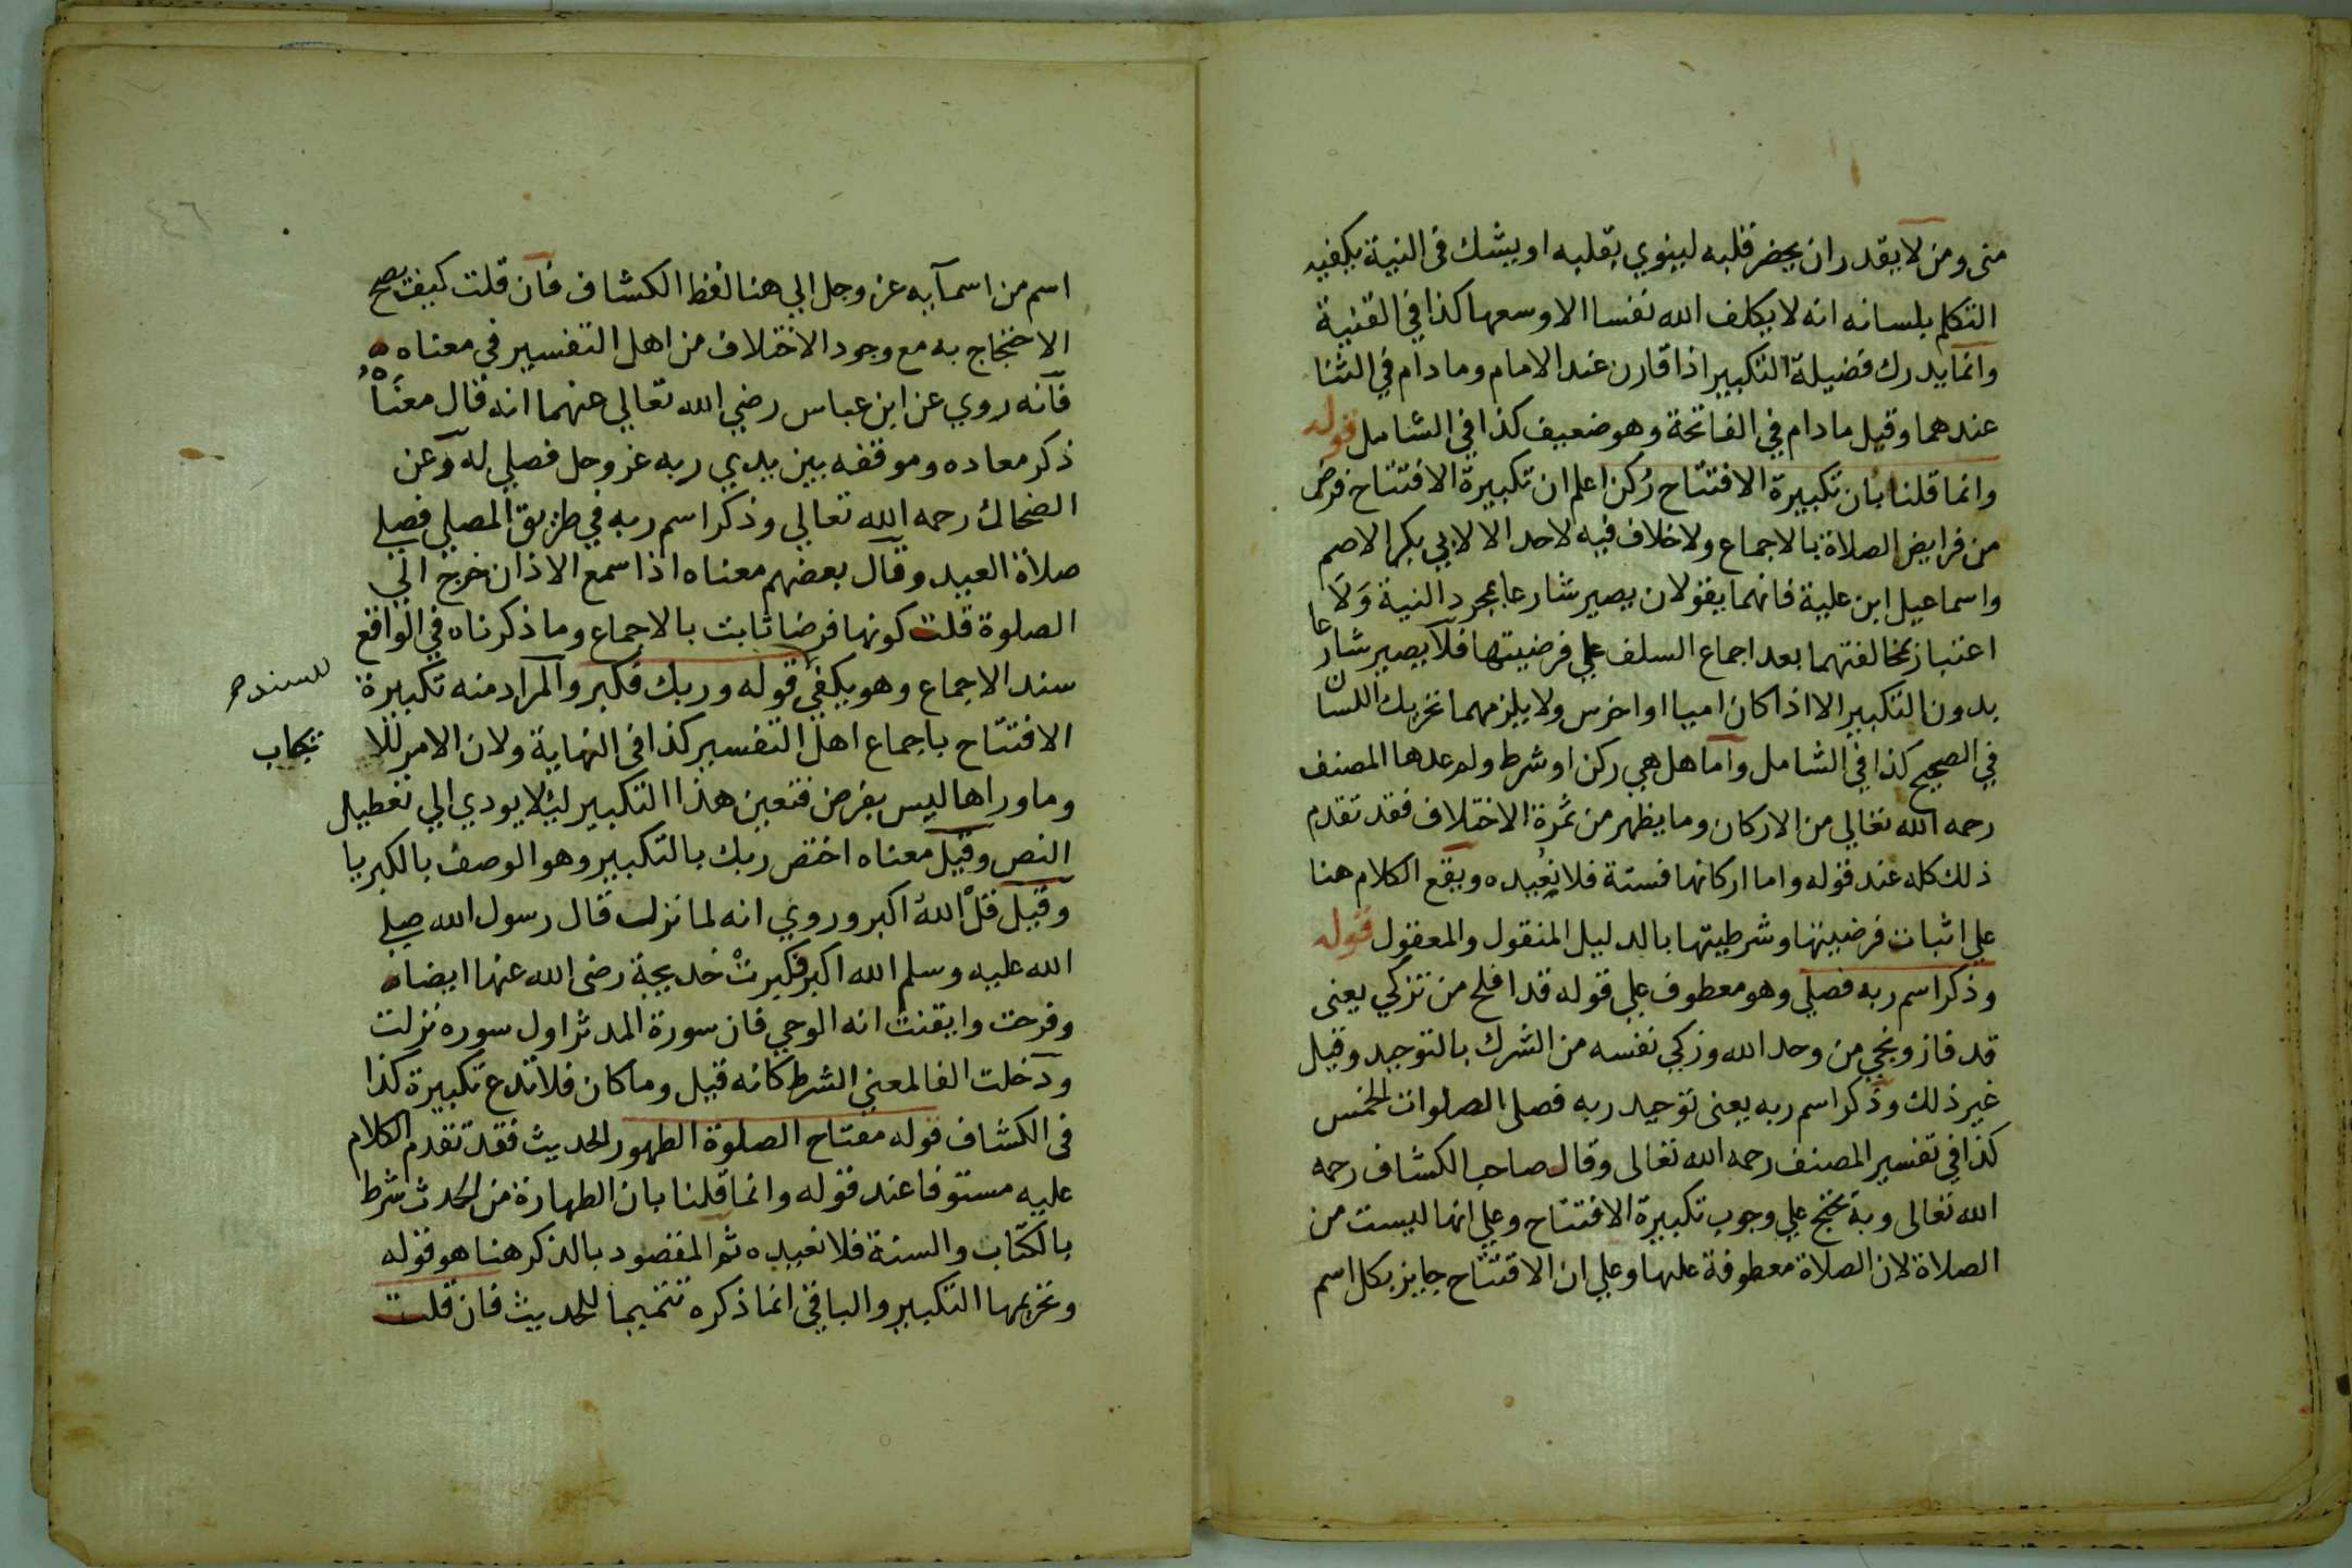 منى ومن لا يقدر ان يحضر قلبه لينوي بقلبه او يشك في النية يكفيه
التكلم بلسانه انه لا يكلف الله نفسا الا وسعها كذا في القنية
وانما يدرك فضيلة التكبير اذا قارن عند الامام وما دام في الثنا
عندهما وقيل ما دام في الفاتحة وهو ضعيف كذا في الشامل قوله
وانما قلنا بان تكبيرة الافتتاح ركن اعلم ان تكبيرة الافتتاح فرض
من فرايض الصلاة بالاجماع ولا خلاف فيه لاحد الا لابي بكر الاصم
واسماعيل ابن علية فانهما يقولان يصير شارعا بمجرد النية ولا
اعتبار بمخالفتهما بعد اجماع السلف علي فرضيتها فلا يصير شارعا
بدون التكبير الا اذا كان اميا او اخرس ولا يلزمهما تحريك اللسان
في الصحيح كذا في الشامل واما هل هي ركن او شرط ولم عدها المصنف
رحمه الله تعالي من الاركان وما يظهر من ثمرة الاختلاف فقد تقدم
ذلك كله عند قوله واما اركانها فستة فلا نعيده وبقع الكلام هنا
علي اثبات فرضيتها وشرطيتها بالدليل المنقول والمعقول قوله
وذكر اسم ربه فصلي وهو معطوف علي قوله قد افلح من تزكي يعنى
قد فاز ونجي من وحد الله وزكي نفسه من الشرك بالتوحيد وقيل
غير ذلك وذكر اسم ربه يعنى توحيد ربه فصلى الصلوات الخمس
كذا في تفسير المصنف رحمه الله تعالى وقال صاحب الكشاف رحمه
الله تعالى وبه يحتج علي وجوب تكبيرة الافتتاح وعلي انها ليست من
الصلاة لان الصلاة معطوفة عليها وعلي ان الافتتاح جايز بكل اسم
اسم من اسمآيه عز وجل الي هنا لفظ الكشاف فان قلت كيف يصح
الاحتجاج به مع وجود الاختلاف من اهل التفسير في معناه
فانه روي عن ابن عباس رضي الله تعالي عنهما انه قال معناه
ذكر معاده وموقفه بين يدي ربه عز وجل فصلي له وعن
الضحاك رحمه الله تعالي وذكر اسم ربه في طريق المصلي فصلي
صلاة العيد وقال بعضهم معناه اذا سمع الاذان خرج الي
الصلوة قلت كونها فرضا ثابت بالاجماع وما ذكرناه في الواقع
سند الاجماع وهو يكفي قوله وربك فكبر والمراد منه تكبيرة
للسند صح
الافتتاح باجماع اهل التفسير كذا في النهاية ولان الامر للا
يجاب
وما وراها ليس بفرض فتعين هذا التكبير ليلا يودي الي تعطيل
النص وقيل معناه اختص ربك بالتكبير وهو الوصف بالكبريا
وقيل قل الله اكبر وروي انه لما نزلت قال رسول الله صلي
الله عليه وسلم الله اكبر فكبرت خديجة رضى الله عنها ايضا
وفرحت وايقنت انه الوحي فان سورة المدثر اول سوره نزلت
ودخلت الفا لمعنى الشرط كانه قيل وما كان فلا تدع تكبيرة كذا
في الكشاف قوله مفتاح الصلوة الطهور الحديث فقد تقدم الكلام
عليه مستوفا عند قوله وانما قلنا بان الطهارة من الحدث شرط
بالكتاب والسنة فلا نعيده ثم المقصود بالذكر هنا هو قوله
وتحريمها التكبير والباقي انما ذكره تتميما للحديث فان قلت